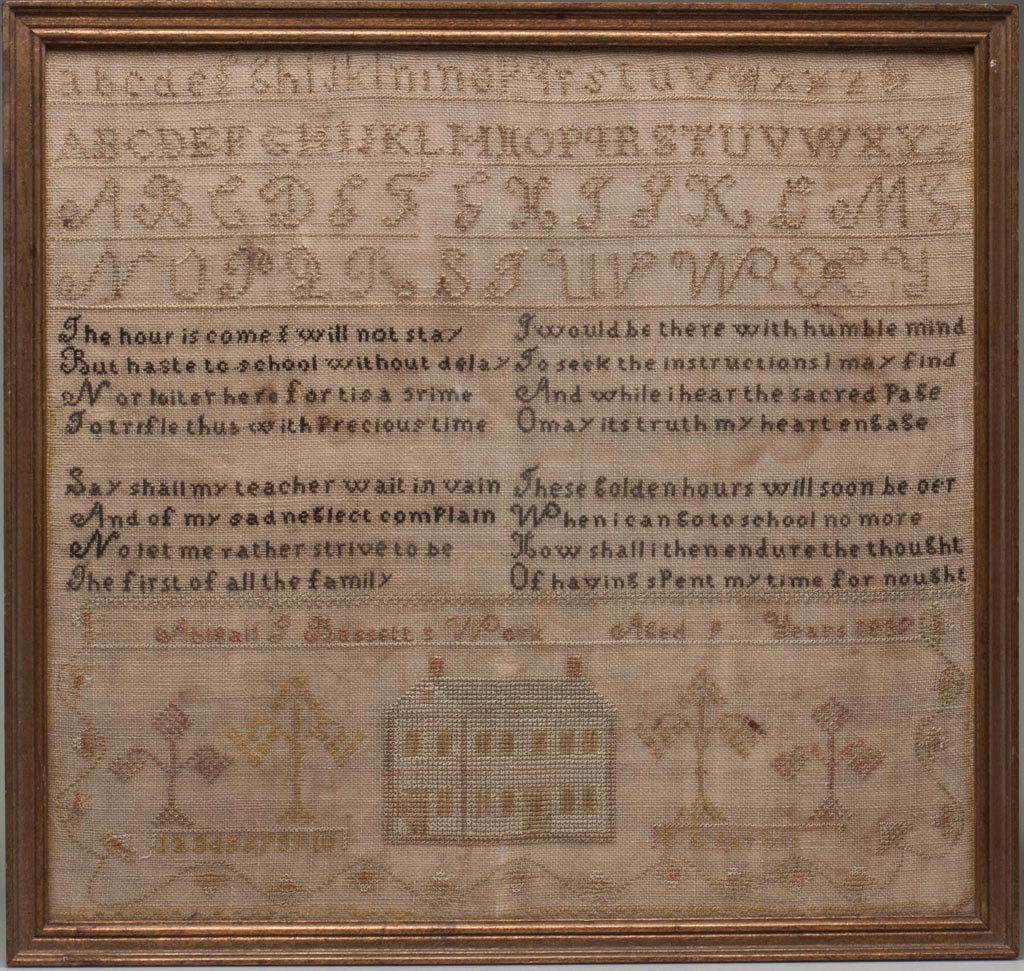 a b c d e f g h i j k l m n o p q r s t u v w x y z &
A B C D E F G H I J K L M N O P Q R S T U V W X Y Z
A B C D E F G H I J K L M
N O P Q R S T U V W X Y
The hour is come & will not stay
But haste to school without delay
Nor loiter here for tis a crime
To trifle thus with Precious time
I would be there with humble mind
To seek the instructions i may find
And while i hear the sacred Page
O may its truth my heart engage
Say shall my teacher wait in vain
And of my sad neglect comPlain
No let me rather strive to be
The first of all the family
These golden hours will soon be oer
When i can go to school no more
How shall i then endure the thought
Of having sPent my time for nought
Abigail Bassett s Work Aged 9 Years
1 2 3 4 5 6 7 8 9 10